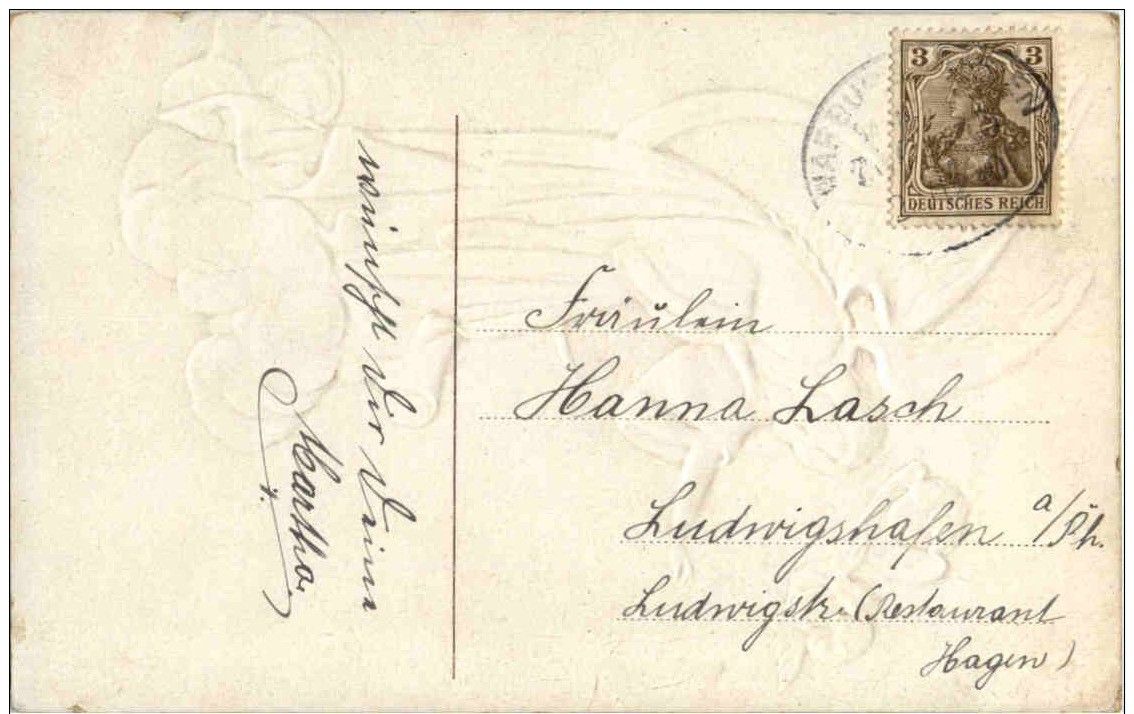 wünscht Dir Deine
Martha.
3 3
DEUTSCHES REICH
Fräulein
Hanna Lasch
Ludwigshafen a/Rh.
Ludwigstr. (Restaurant
Hagen)